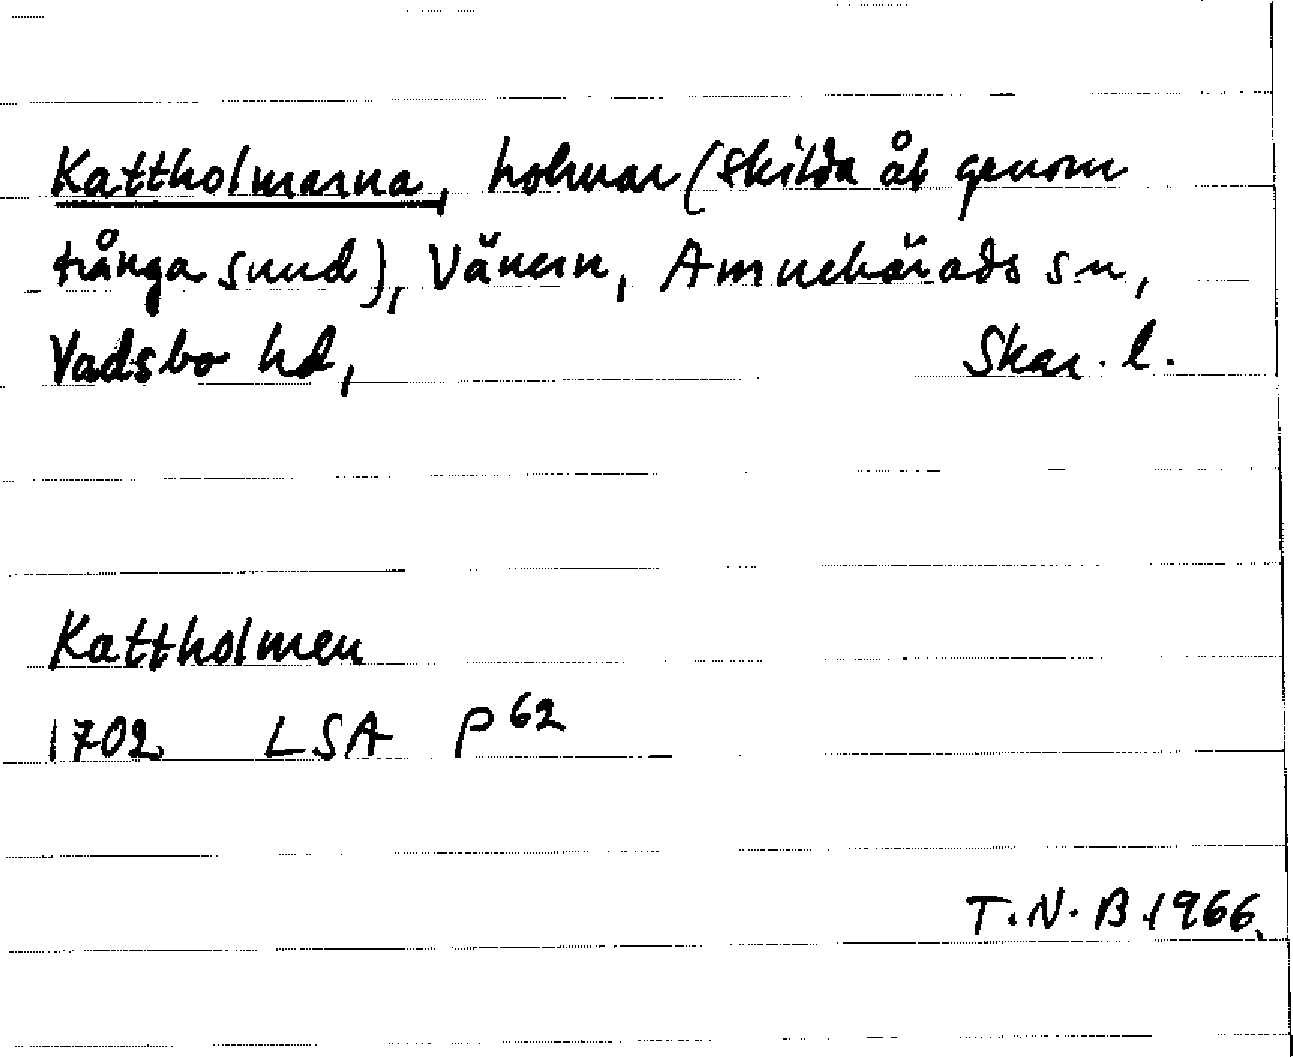 Kattholmarna, holmar (skilda åt genom
trånga sund), Vänern, Amnehärads sn,
Vadsbo hd, Skar. l.
Kattholmen
1702 LSA P 62
T.N.B. 1966.